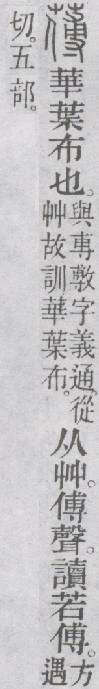 華葉布也。與尃敷字義通。從艸故訓華葉布。从艸。傅聲。讀若傅。方遇
切。五部。